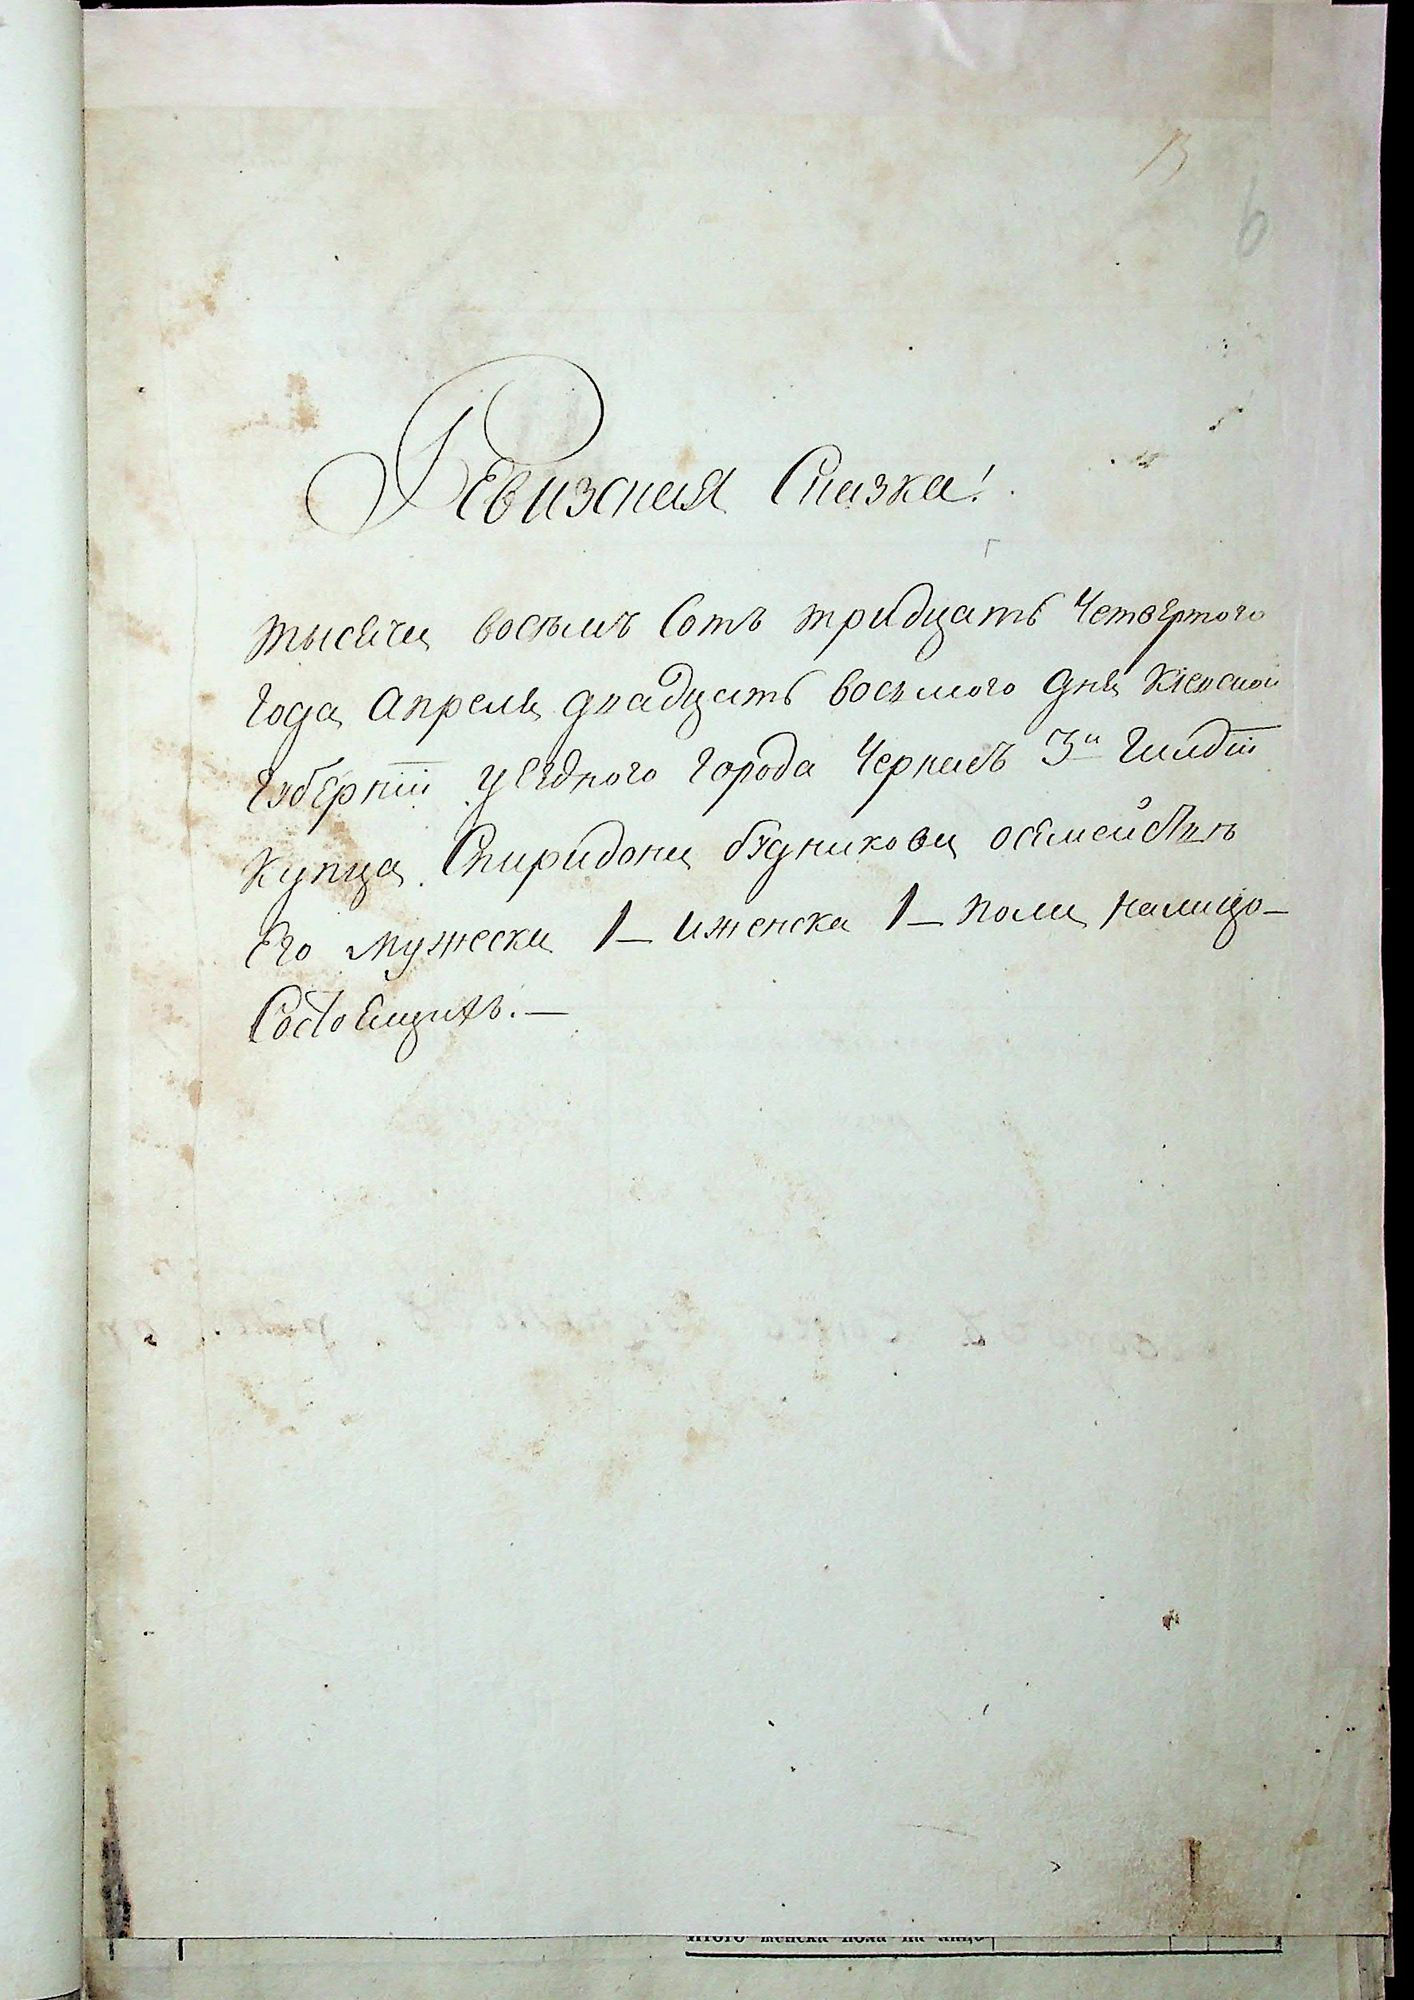 13
6
Ревизская Сказка!
тысячи восемъ Сотъ тридцать Четвертого
Года Апреля двадцать восьмого дня Кіевской
Губерніи уезднаго города Черкасъ 3й Гилдіи
Купца Спиридона будникова осемействе
Его мужеска 1 – иженска 1 – пола налицо –
Состоящихъ. –
Итого женска пола на лицо